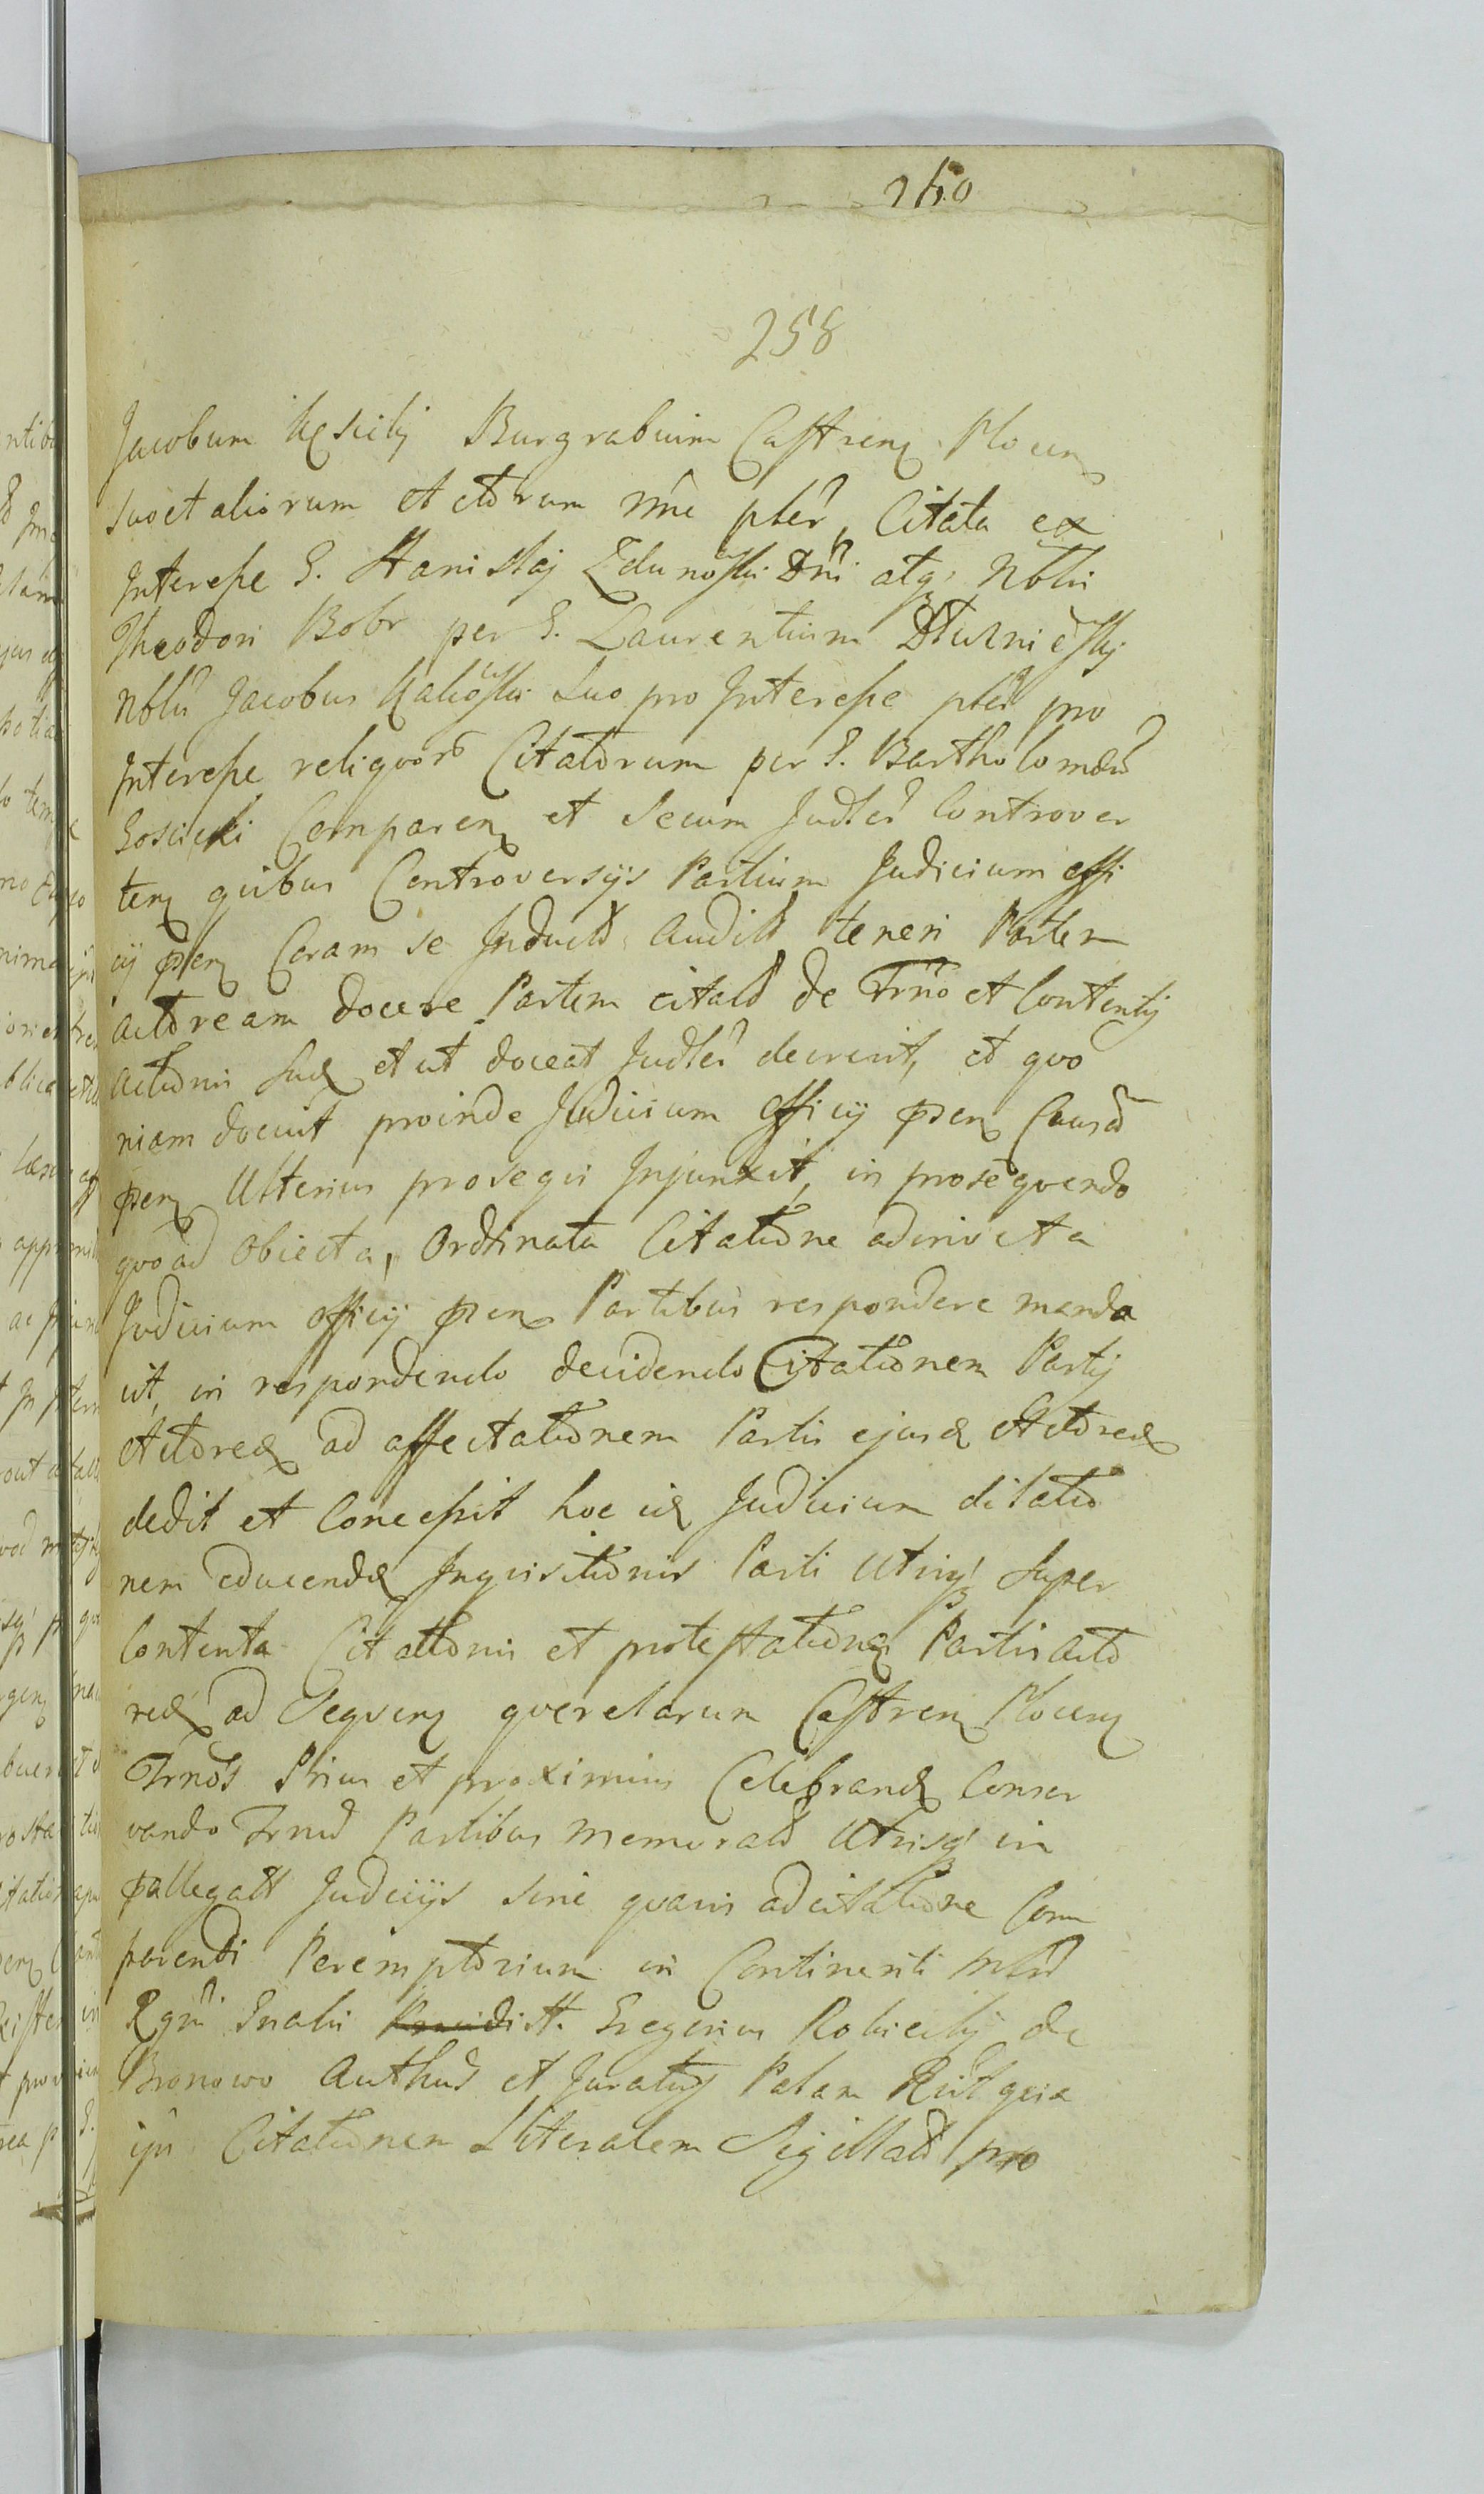 260
258
Jacobum Kęsicki Burgrabium Castren Plocen
suo et aliorum Actorum nñe pter, Citata ex
Interesse G. Stanislai Zdunoski Dñi atq Nobli
Theodori Bobr per G. Laurentium Dłużnieski
Nblis Jacobus Kalioski Suo pro Interesse pter pro
Interesse reliquor Citatorum per G. Bartholomæū
Gosicki Comparen et Secum Judter Controver
ten quibus Controversijs Partium Judicium offi
cij pten Coram se Inductis auditis teneri Partem
actoream docere Partem citatā de Trño et Contentis
actionis Suæ et ut doceat Judter decrevit, et quo
niam docuit proinde Judicium officij pten Causā
pten Ulterius prosequi Injunxit, in prosequendo
quo ad Obiecta, Ordinata Citatione adinvecta
Judicium officij pten Partibus respondere manda
vit, in respondendo decidendo Citationem Partis
Actoreæ ad affectationem Partis ejusd Actoreæ
dedit et Concessit hoc id Judicium dilatio
nem educendæ Inquisitionis Parti Utriq Super
Contenta Citationis et protestationis Partis acto
reæ ad Sequen querelarum Castren Plocen
Trños Prius et proximius Celebrand Conser
vando Trnū Partibus memoratis Utrisq in
pallegatt Judicijs sine quavis adcitatione Com
parendi Peremptorium in Continenti Mtrlis
Rgni Gnalis Gregorius Robiecki de
Bronowo Authūs et Juratus Palam Rclt quia
ipse Citationem Literalem Sigillatā pro